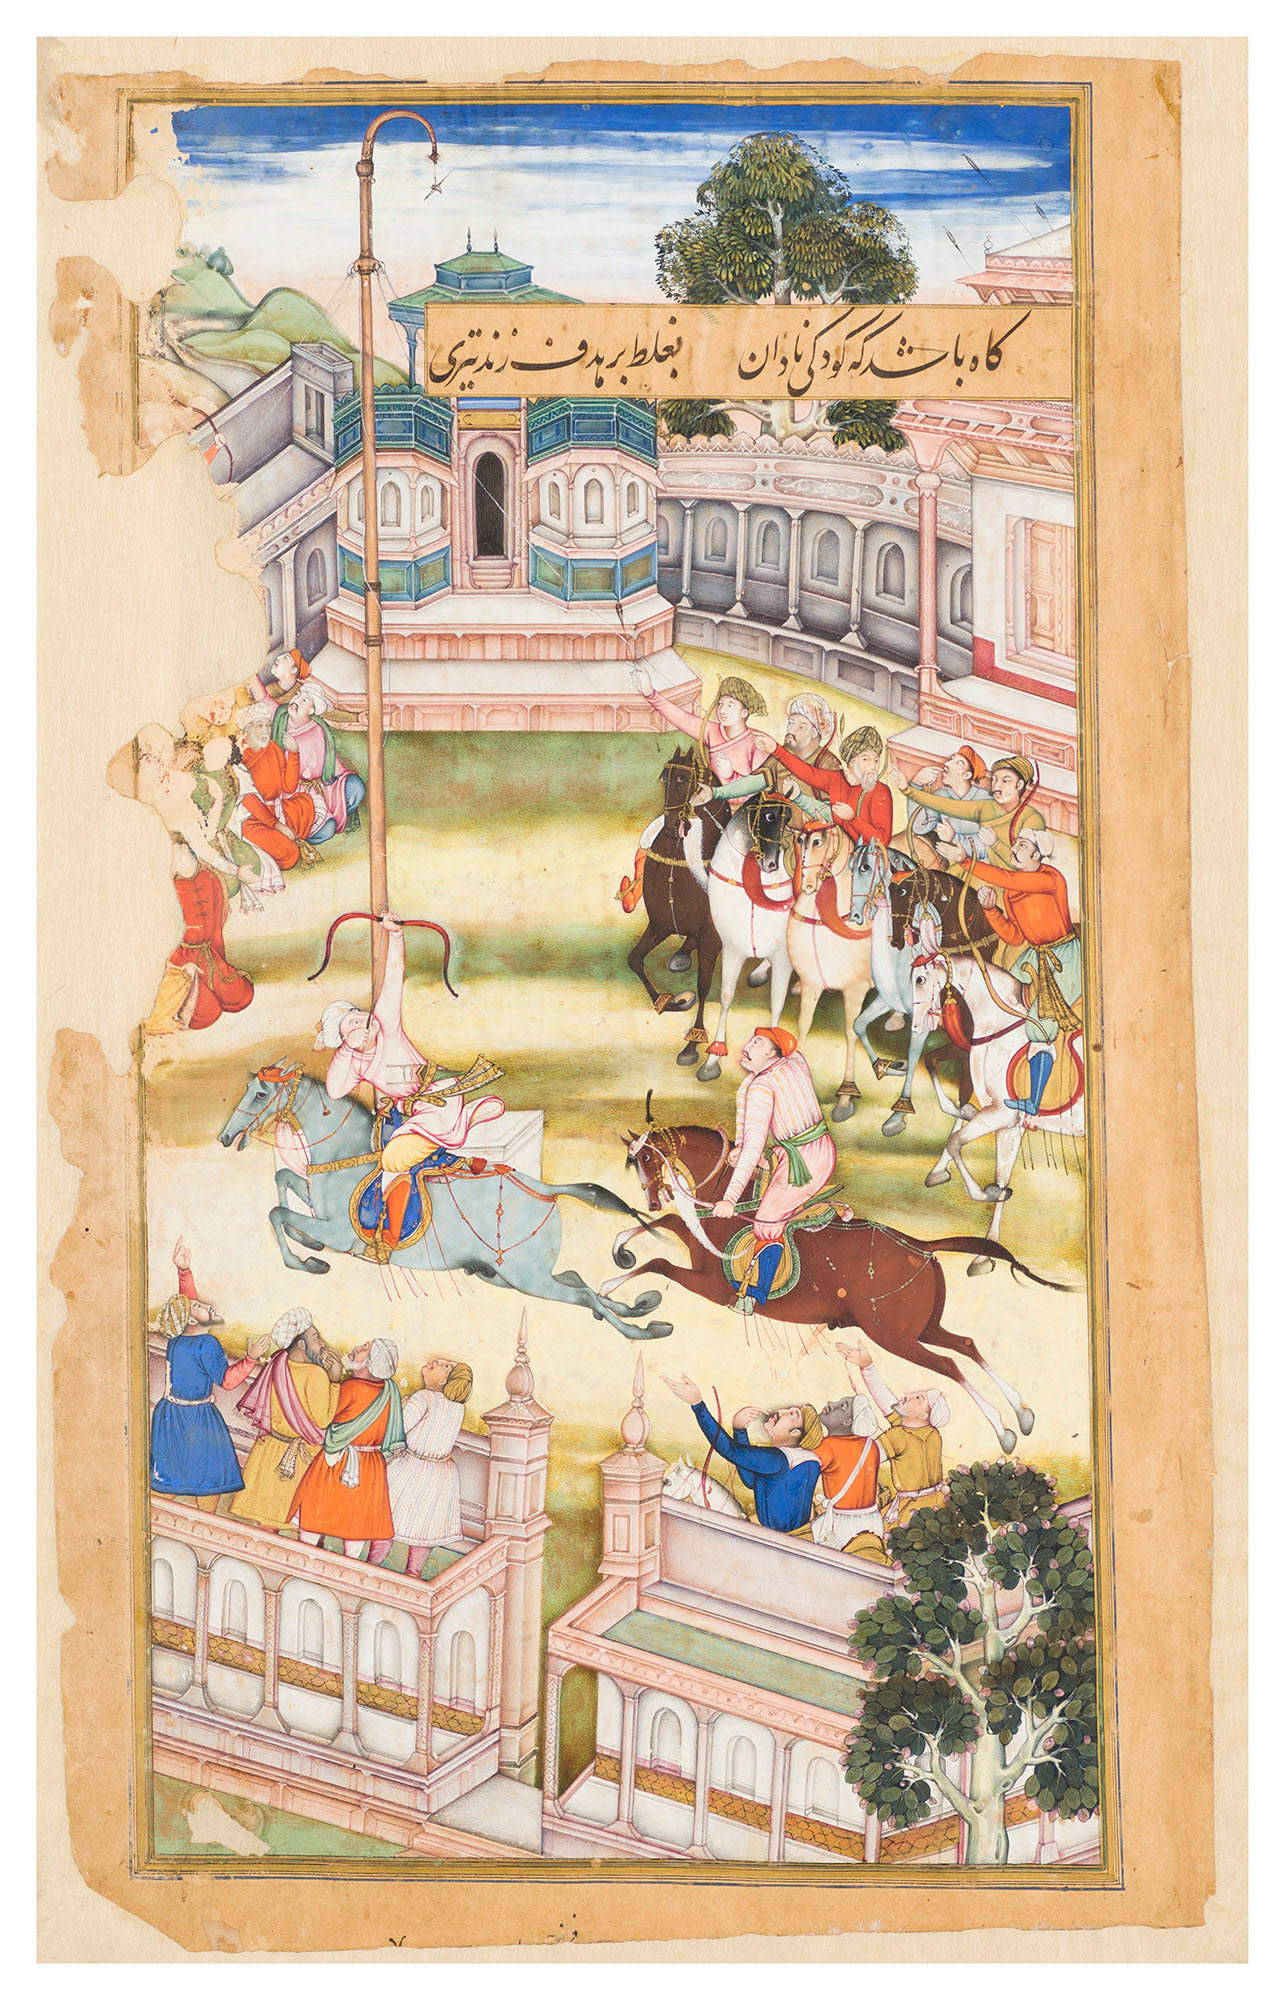 گاه باشد که کودکی نادان بغلط بر هدف زند تیری